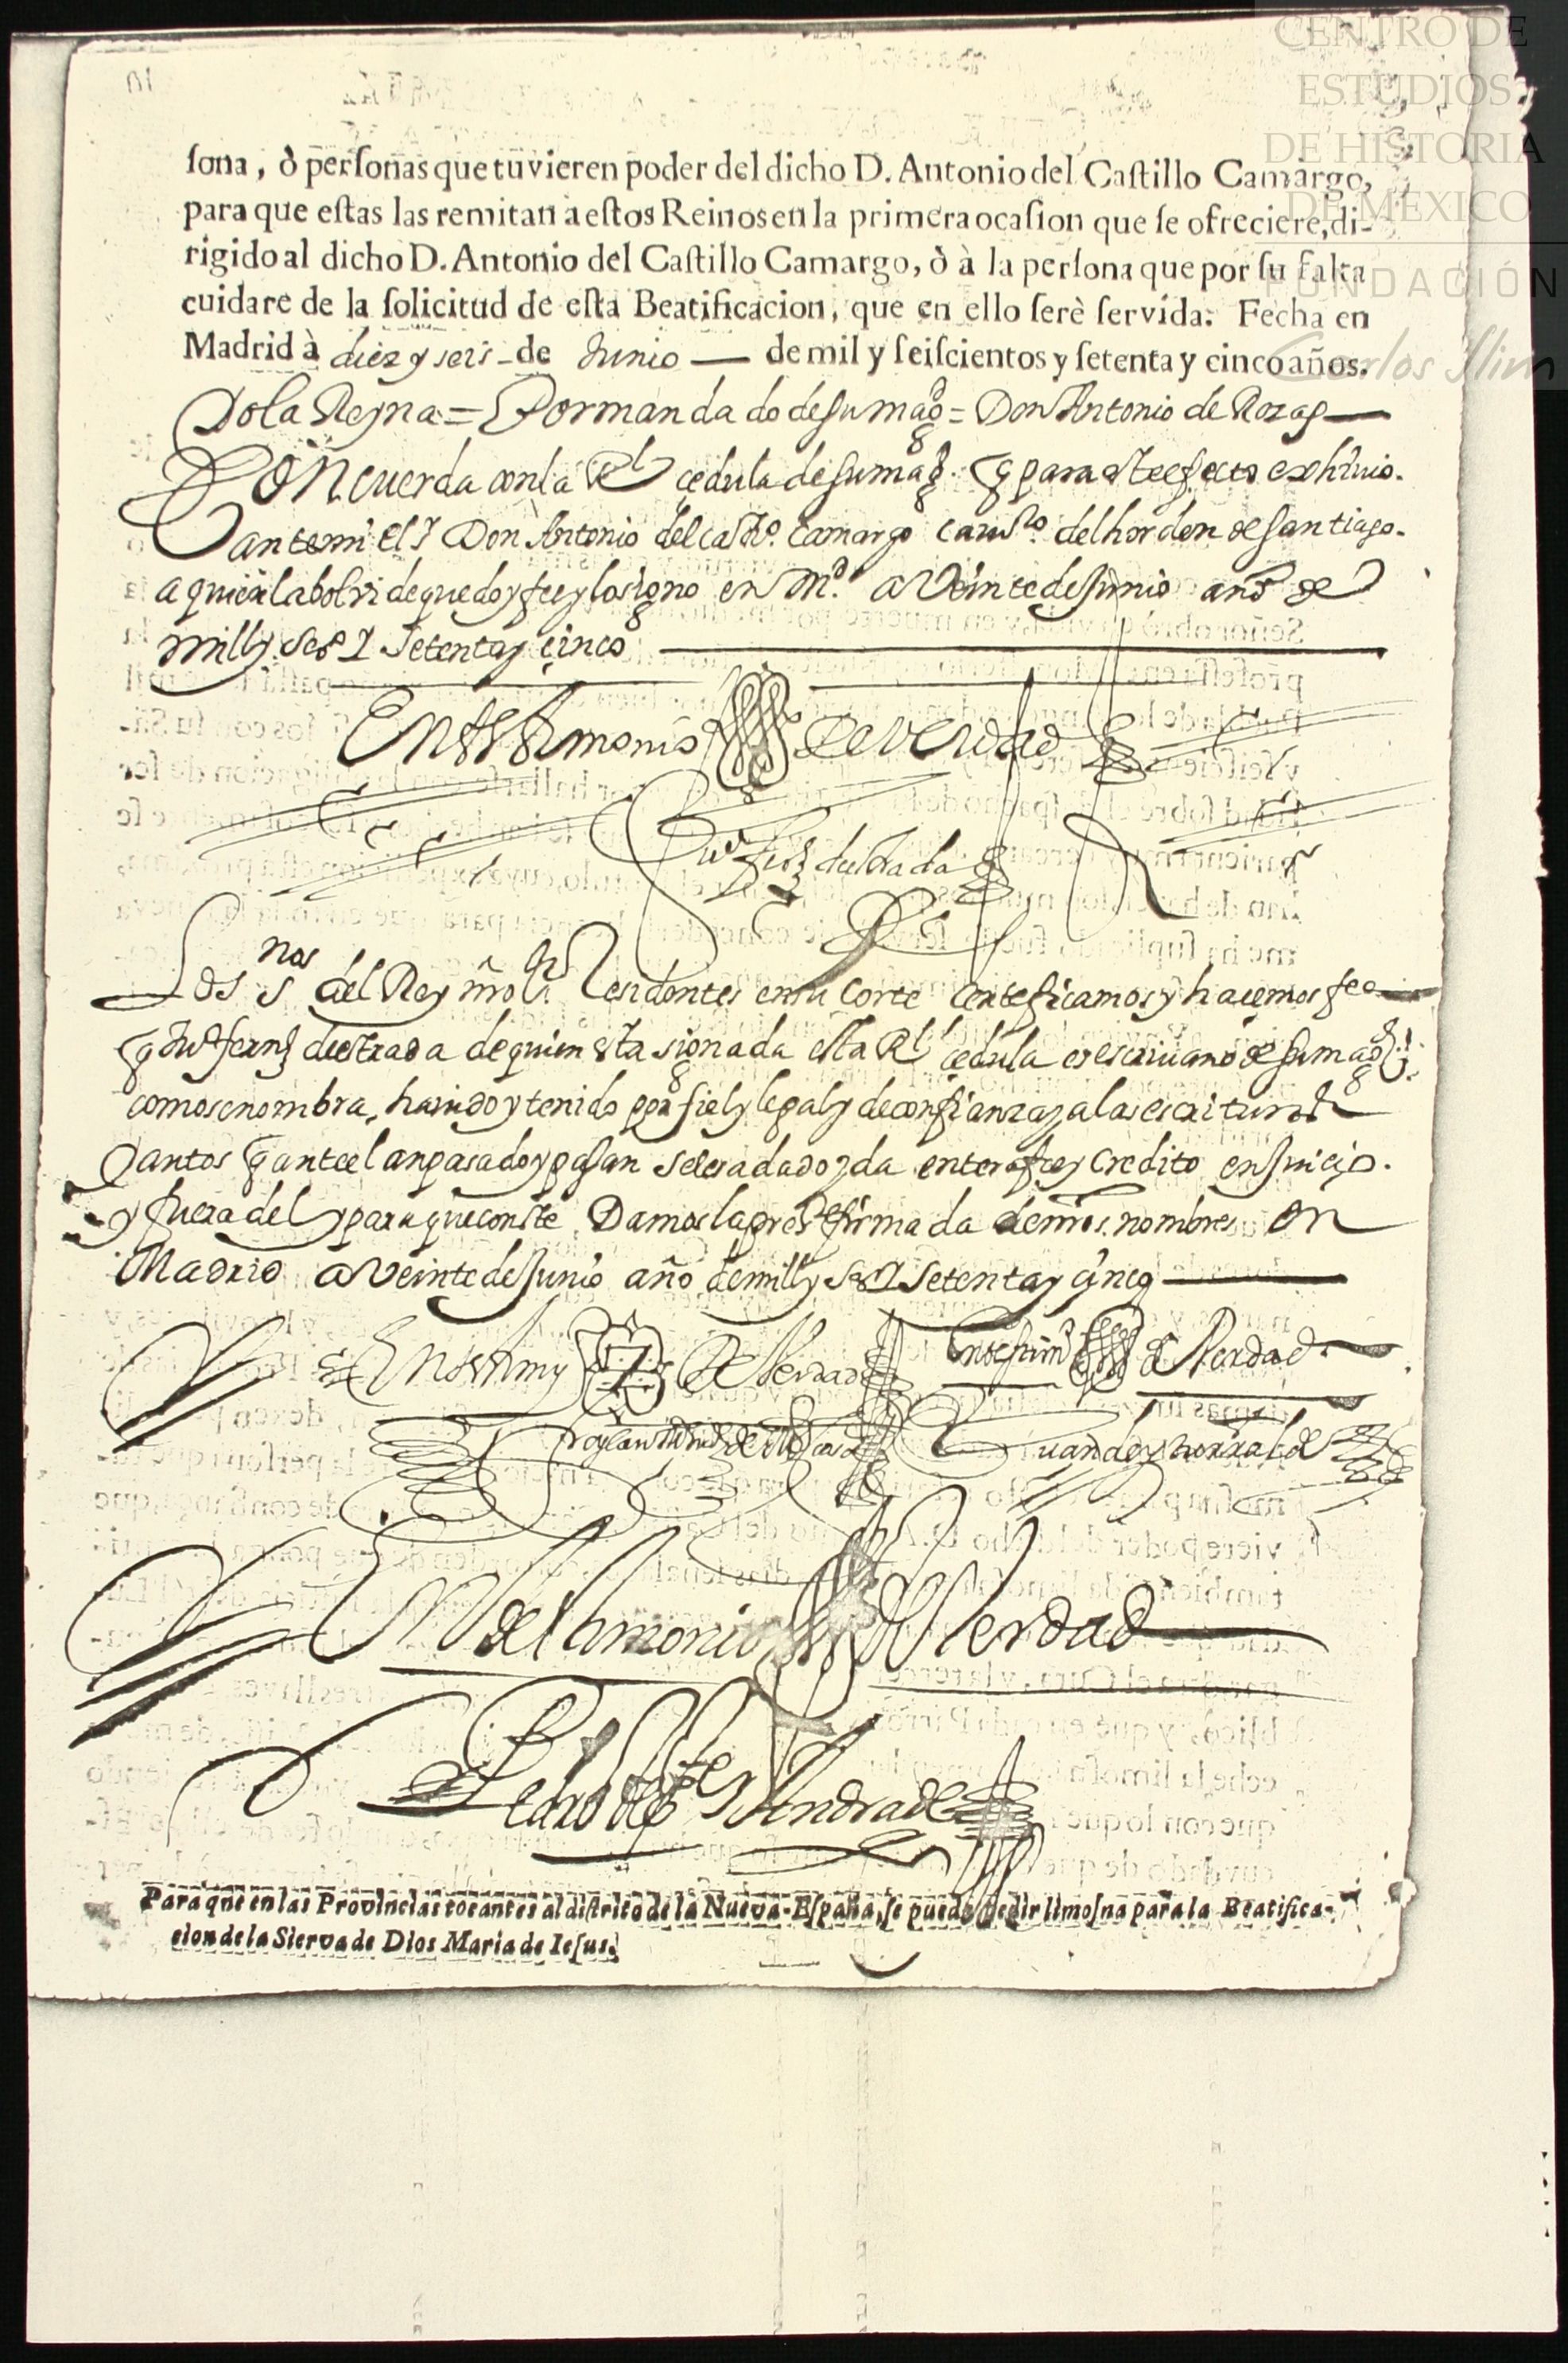 CENTRO DE
ESTUDIOS
DE HISTORIA
DE MEXICO
FUNDACIÓN
Carlos Slim
ſona, ò perſonas que tuvieren poder del dicho D. Antonio del Caſtillo Camargo,
para que eſtas las remitan a eſtos Reinos en la primera ocaſion que ſe ofreciere, di-
rigido al dicho D. Antonio del Caſtillo Camargo, ò à la perſona que por ſu falta
cuidare de la ſolicitud de eſta Beatificacion, que en ello ſerè ſervida. Fecha en
Madrid à diez y seis de Junio — de mil y ſeiſcientos y ſetenta y cinco años.
Yo la Reyna = Por mandado de su magd = Don Antonio de Rozas
Concuerda con la Rl cedula de su magd. q para este efecto exhiuio
ante mi el Sr Don Antonio del castillo. Camargo cauo. del horden de Santiago.
a quien la bolvi de que doy fee y lo signo en Md. a Veinte de Junio año de
mill y ses y Setenta y cinco
En testimonio de verdad
Juo frz de estrada
Los ssnos del Rey nro sr Residentes en su Corte certeficamos y hacemos fee
q Juo fernz de estrada de quien esta signada esta Rl cedula es escriuano de su magd
como se nombra, hauido y tenido por fiel y legal y de confianza y a las escrituras
y autos q ante el an pasado y pasan se les a dado y da entera fee y credito en Juicio.
y fuera del y para que conste Damos la preste firmada de nros. nombres en
Madrid a Veinte de Junio año de mill y ses y Setenta y cinco
En testimo de Verdad En testimo de Verdad
En testimonio de Verdad
Pedro de Andrade
Para que en las Provincias tocantes al diſtrito de la Nueva-Eſpaña, ſe puede pedir limoſna para la Beatifica-
cion de la Sierva de Dios Maria de Ieſus.